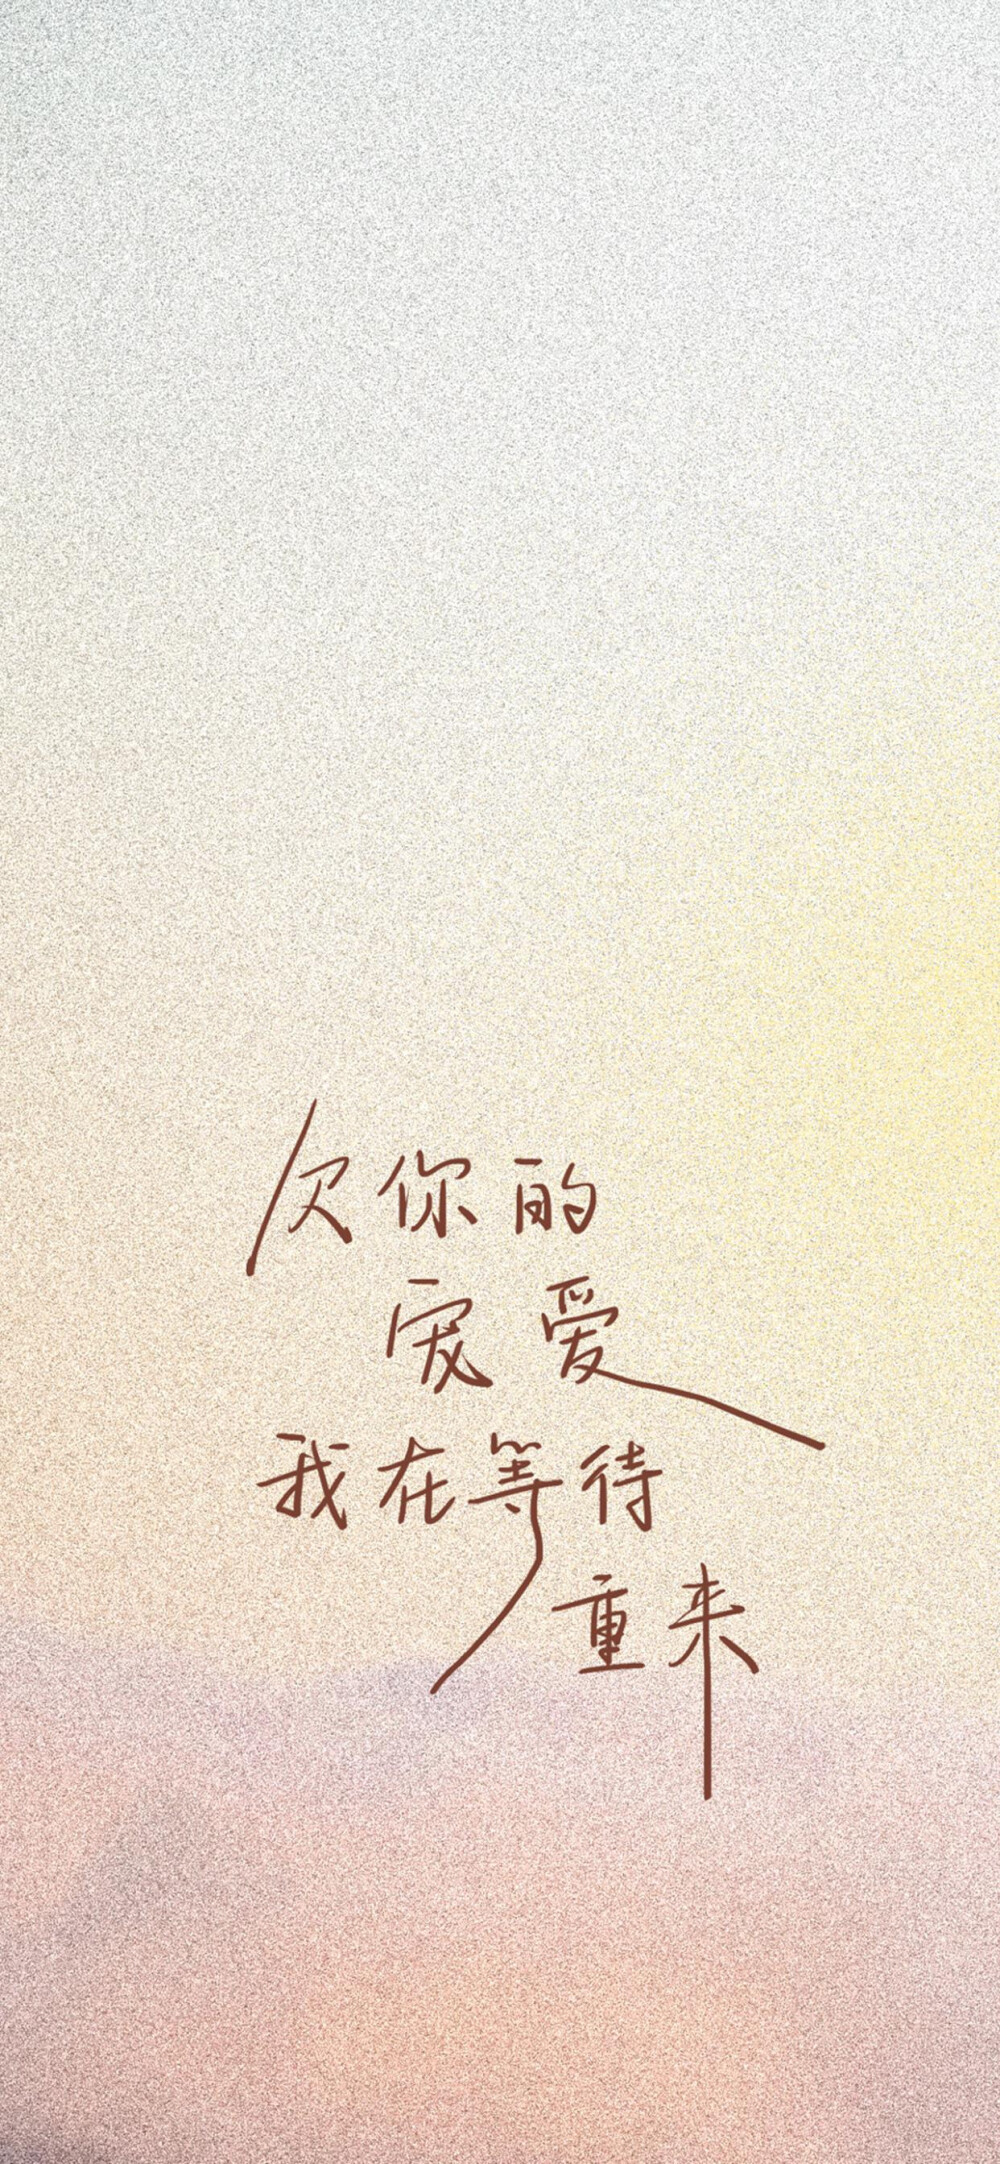 欠你的
宠爱
我在等待
重来